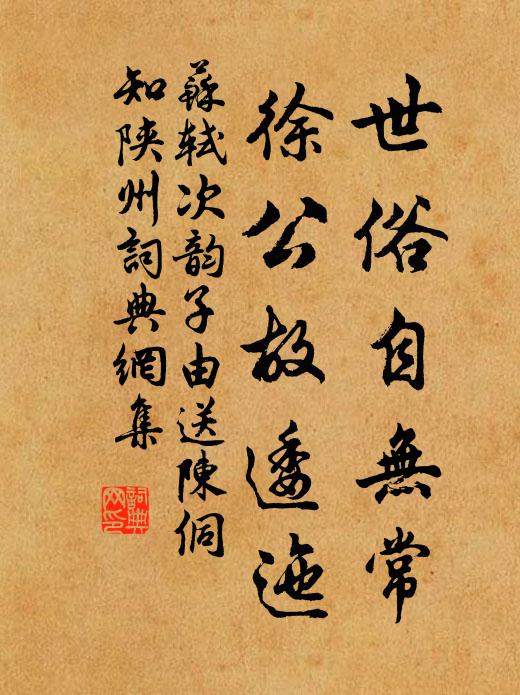 世俗自無常
徐公故逶迤
蘇軾次韵子由送陳侗
知陝州詞典網集
詞典
网印